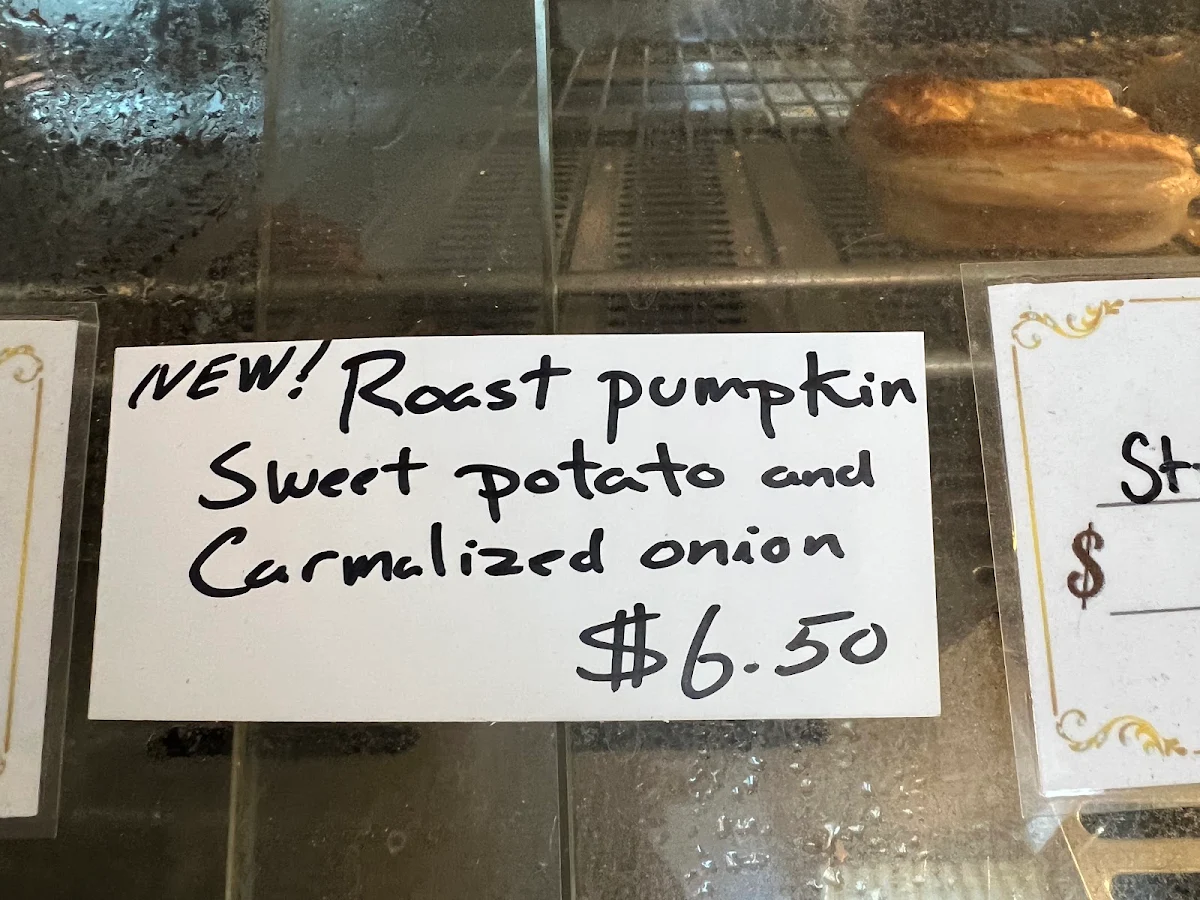 NEW! Roast pumpkin
Sweet potato and
Carmalized onion
$6.50
$